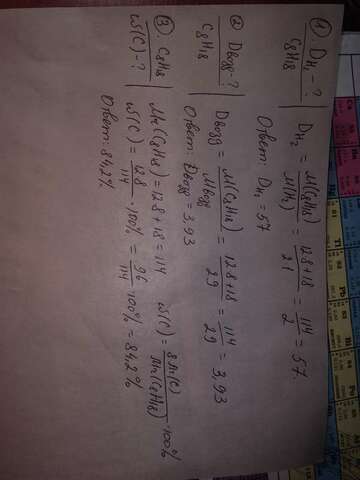 ① D H₂ - ?
C₈H₁₈
D H₂ = M(C₈H₁₈) / M(H₂) = 12·8+18 / 2·1 = 114 / 2 = 57.
Ответ: D H₂ = 57
② D возд - ?
C₈H₁₈
D возд = M(C₈H₁₈) / M возд = 12·8+18 / 29 = 114 / 29 = 3,93
Ответ: D возд = 3,93
③ C₈H₁₈
ω(C) - ?
Mr(C₈H₁₈) = 12·8+18 = 114
ω(C) = 8 Ar(C) / Mr(C₈H₁₈) · 100%
ω(C) = 12·8 / 114 · 100% = 96 / 114 · 100% = 84,2%
Ответ: 84,2%